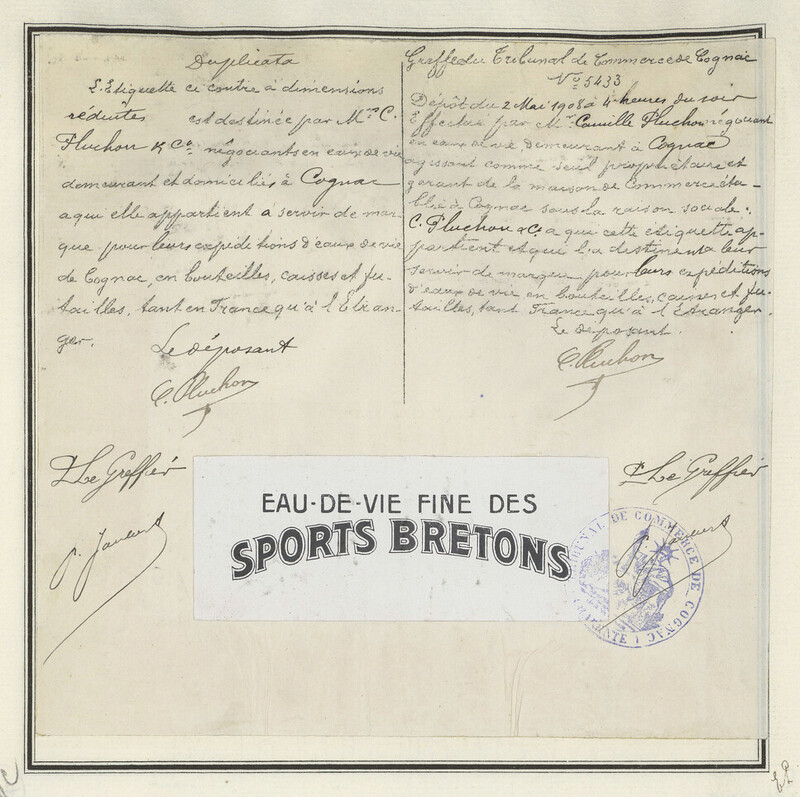 Duplicata
L'Etiquette ci contre à dimensions
réduites est destinée par Mrs C.
Pluchon & Co négociants en eaux de vie
demeurant et domiciliés à Cognac
a qui elle appartient a servir de mar-
que pour leurs expéditions d'eaux de vie
de Cognac, en bouteilles, caisses et fu-
tailles, tant en France qu'à l'Etran-
ger.
Le déposant
C. Pluchon
Greffe du Tribunal de Commerce de Cognac
No 5433
Dépôt du 2 Mai 1908 à 4 heures du soir
Effectué par Mr Camille Pluchon négociant
en eaux de vie demeurant à Cognac
agissant comme seul propriétaire et
gerant de la maison de Commerce éta-
blie à Cognac sous la raison sociale :
C. Pluchon & Co a qui cette etiquette ap-
partient et qui l'a destinent a leur
servir de marque pour leurs expéditions
d'eaux de vie en bouteilles, caisses et fu-
tailles, tant France qu'a l'Etranger.
Le déposant.
C. Pluchon
Le Greffier
Le Greffier
EAU-DE-VIE FINE DES
SPORTS BRETONS
TRIBUNAL DE COMMERCE DE COGNAC
CHARENTE